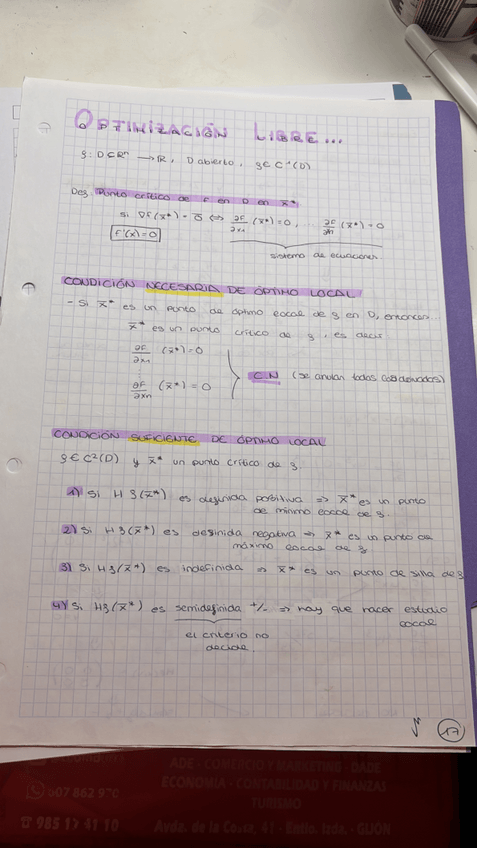 OPTIMIZACIÓN LIBRE...
f: D⊂Rⁿ → R, D abierto, f∈C¹(D)
Def. Punto crítico de F en D en x̄*
si ∇F(x̄*) = 0̄ ⇔ ∂F/∂x₁ (x̄*) = 0, ... ∂F/∂xn (x̄*) = 0
F'(x) = 0
sistema de ecuaciones
CONDICIÓN NECESARIA DE ÓPTIMO LOCAL
- Si x̄* es un punto de óptimo local de f en D, entonces...
x̄* es un punto crítico de f, es decir
∂F/∂x₁ (x̄*) = 0
⋮
∂F/∂xn (x̄*) = 0
CN (se anulan todas las derivadas)
CONDICIÓN SUFICIENTE DE ÓPTIMO LOCAL
f∈C²(D) y x̄* un punto crítico de f
1) Si Hf(x̄*) es definida positiva ⇒ x̄* es un punto
de mínimo local de f.
2) Si Hf(x̄*) es definida negativa ⇒ x̄* es un punto de
máximo local de f
3) Si Hf(x̄*) es indefinida ⇒ x̄* es un punto de silla de f
4) Si Hf(x̄*) es semidefinida +/- ⇒ hay que hacer estudio
local
el criterio no
decide.
17
ADE - COMERCIO Y MARKETING - DADE
ECONOMIA - CONTABILIDAD Y FINANZAS
TURISMO
985 17 41 10
Avda. de la Costa, 41 - Entlo. Izda. - GIJÓN